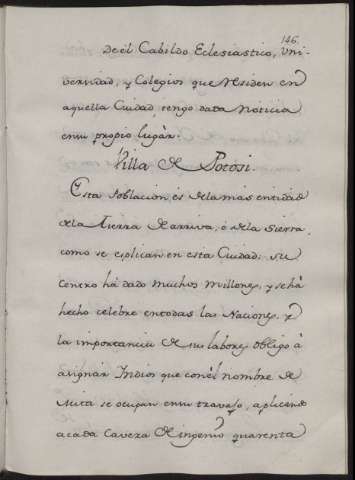 146.
de él Cabildo Eclesiastico, Uni-
versidad, y Colegios que residen en
aquella Ciudad, tengo data Noticia
en su propio lugàr.
Villa de Potosi.
Esta Poblacion es de la mas entidad
de la Tierra de arriva, ó de la Sierra,
como se esplican en esta Ciudad: su
Centro ha dado muchos Millones, y se há
hecho célebre en todas las Naciones, y
la importancia de sus labores obligo à
asignàr Indios que con èl nombre de
Mita se ocupan en su travajo, aplicando
a cada Cavera de ingenio quarenta